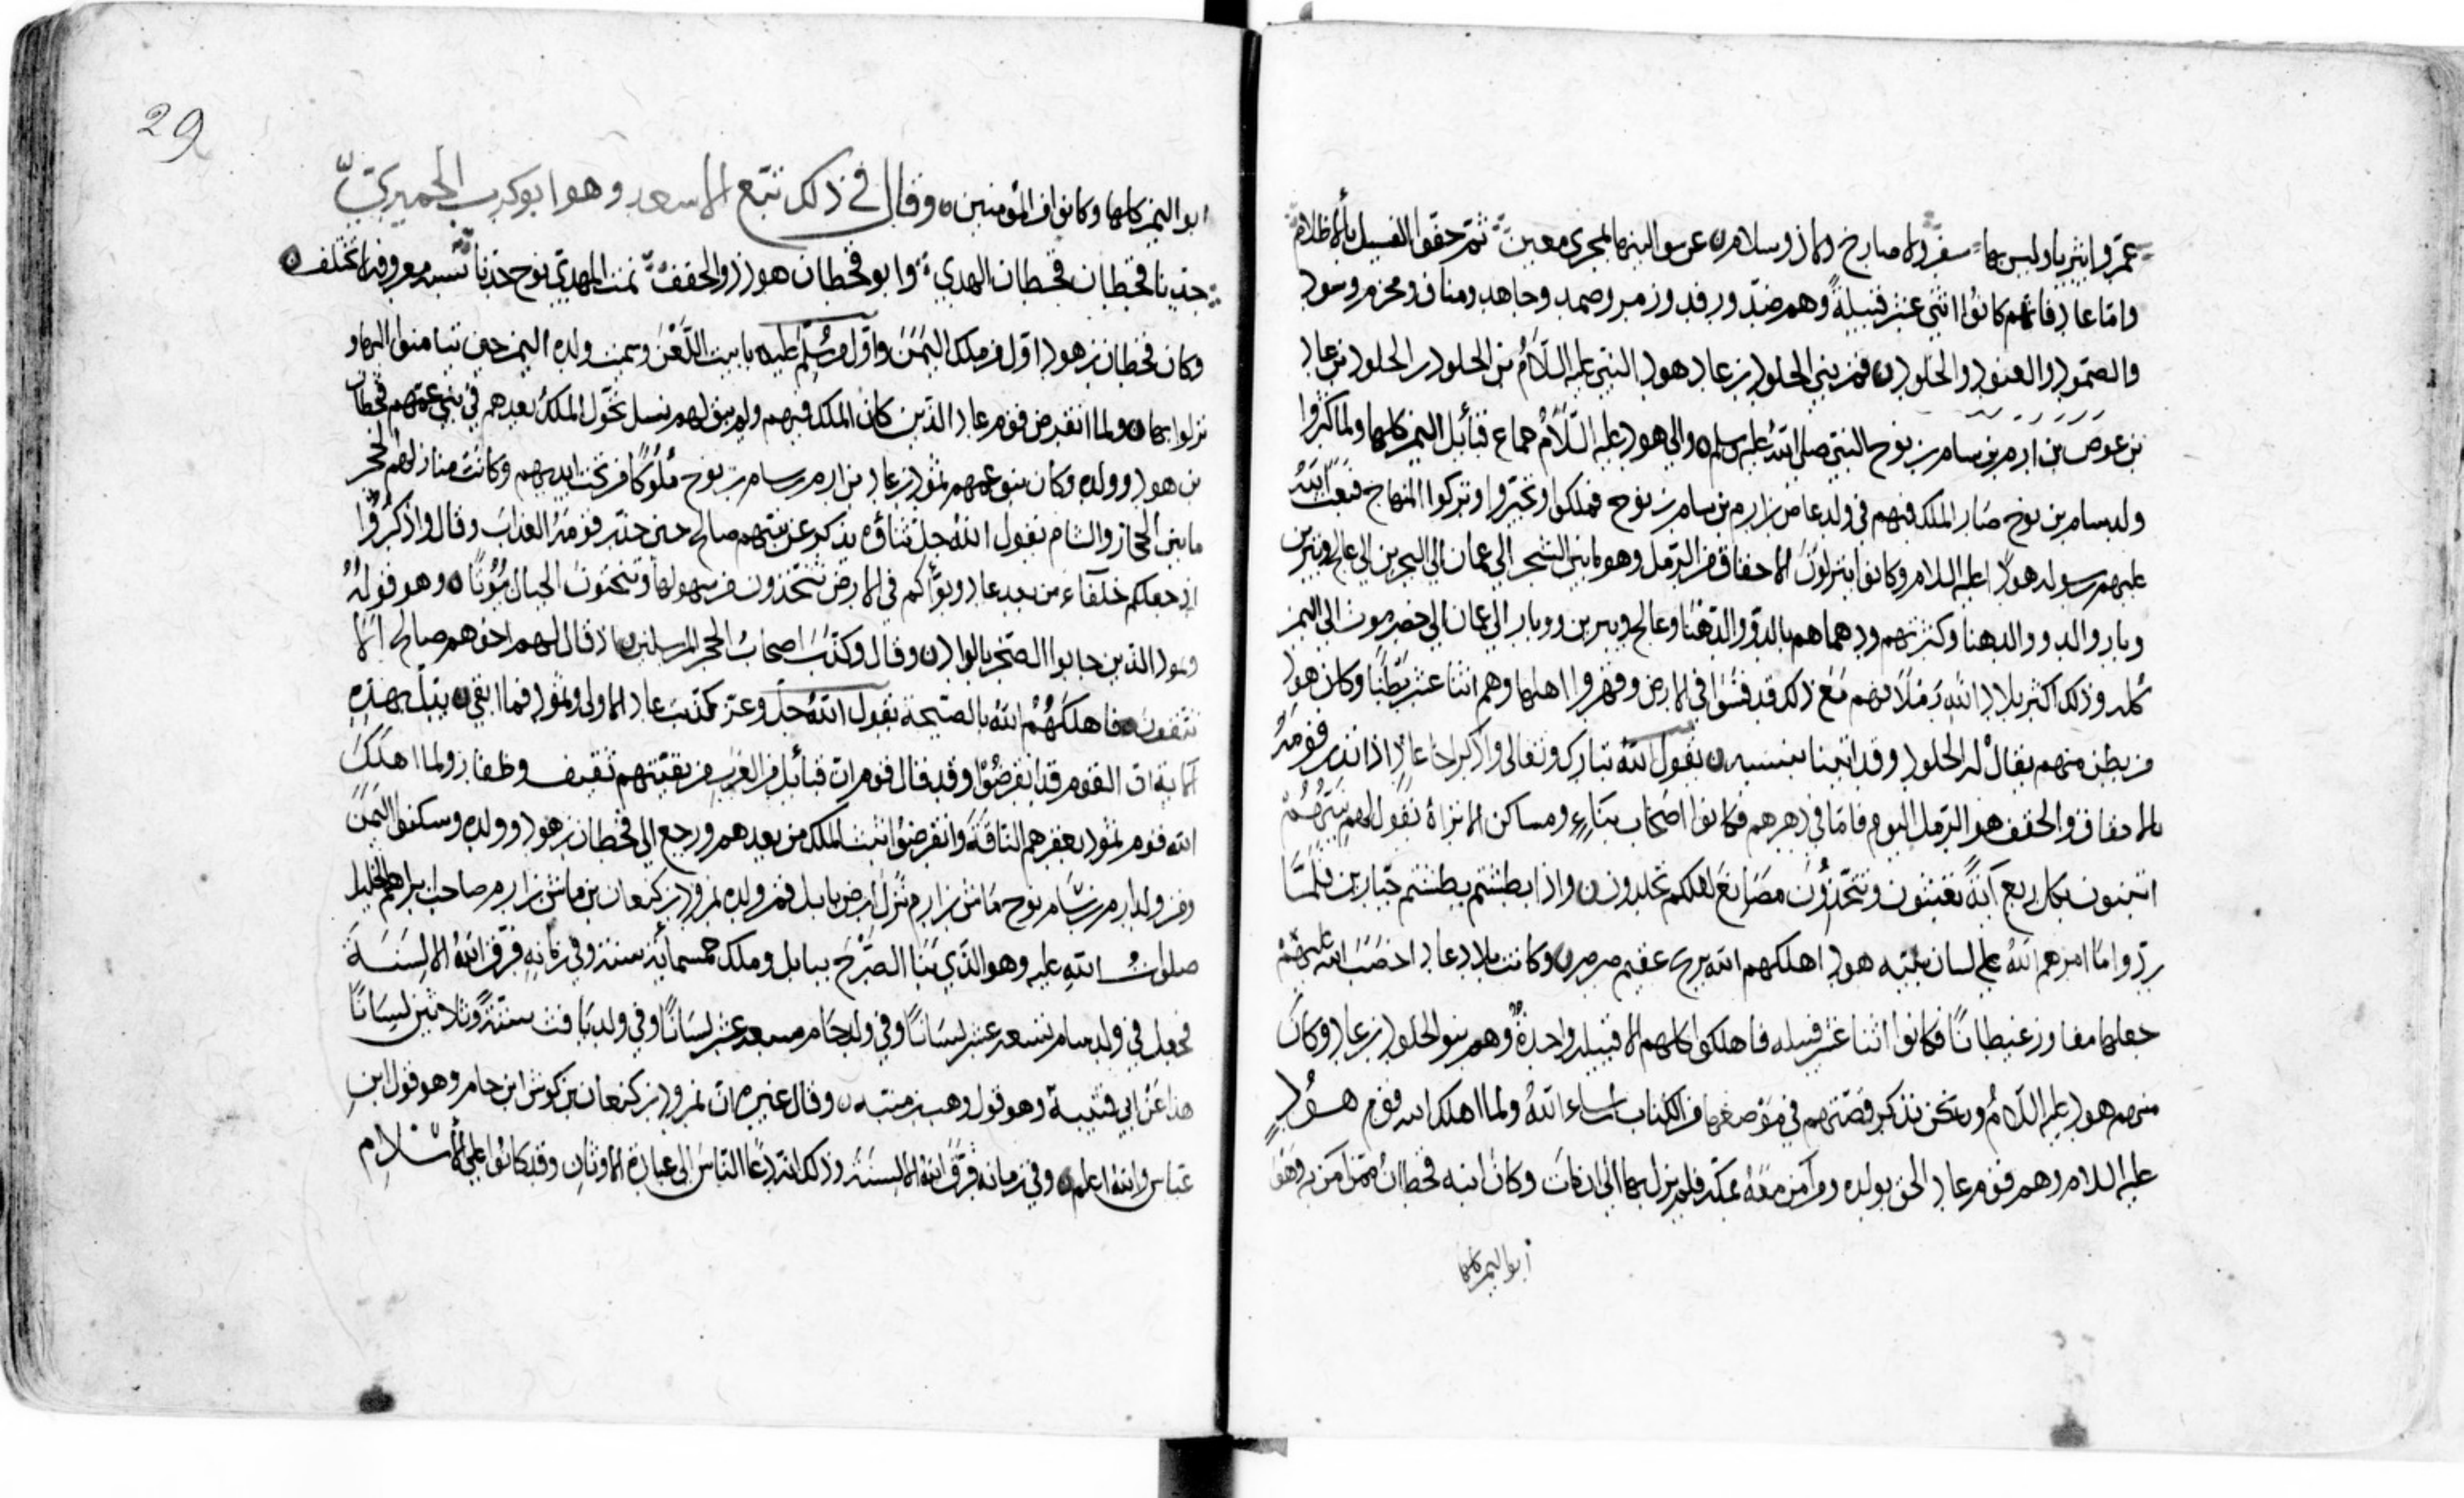 عمروا يثربا وليس بها سفر ولا صارخ ولا ذو سلام عرسوا لينها لمجرى معين ثم حفوا الفسيل بالاظلام
واما عاد فانهم كانوا اثني عشر قبيلة وهم ضد ورفد وزمر وصمد وجاهد ومناف ومخرم وسود
والصمود والعنود والخلود فمن بني الخلود بن عاد هود النبي عليه السلام بن الخلود بن الخلود بن عاد
بن عوص بن ارم بن سام بن نوح النبي صلى الله عليه وسلم والى هود عليه السلام جماع قبائل اليمن كلها ولما كثروا
ولد سام بن نوح صار الملك فيهم في ولد عاص بن ارم بن سام بن نوح فملكوا وتجبروا وتركوا المنهاج فبعث الله
عليهم رسوله هودا عليه السلام وكانوا ينزلون الاحقاف من الرمل وهو ما بين الشحر الى عمان الى البحرين الى عالج ويبرين
وبار والدو والدهنا وكثرتهم ودهماهم بالدو والدهنا وعالج ويبرين ووبار الى عمان الى حضرموت الى اليمن
كله وذلك اكثر بلاد الله رملا فهم مع ذلك قد فشوا في الارض وقهروا اهلها وهم اثنا عشر بطنا وكان هود
من بطن منهم يقال له الخلود وقد اتينا بنسبه يقول الله تبارك وتعالى واذكر اخا عاد اذ انذر قومه
بالاحقاف والحقف هو الرمل اليوم فاما في دهرهم فكانوا اصحاب بناء ومساكن الا تراه يقول لهم نبيهم
اتبنون بكل ريع آية تعبثون وتتخذون مصانع لعلكم تخلدون واذا بطشتم بطشتم جبارين فلما
ردوا ما امرهم الله على لسان نبيه هود اهلكهم الله بريح عقيم صرصر وكانت بلاد عاد اخصب الله عليهم
جعلها مفاوز غيطانا فكانوا اثنا عشر قبيله فاهلكوا كلهم الا قبيله واحدة وهم بنو الخلود بن عاد وكان
منهم هود عليه السلام ونحن نذكر قصتهم في موضعها من الكتاب ان شاء الله ولما اهلك الله قوم هود
عليه السلام وهم قوم عاد الحق بولده ومن آمن معه بمكة فلم يزل بها الى ان مات وكان ابنه قحطان ممن آمن به وهو
ابو اليمن كلها
29
ابو اليمن كلها وكانوا من المؤمنين وقال في ذلك تبع الاسعد وهو ابو كرب الحميري
جدنا قحطان قحطان الهدي وابو قحطان هود ذو الحقف نمت المهدي نوح جدنا نسبه معروفه لا تختلف
وكان قحطان بن هود اول من ملك اليمن واول من سلم عليه بابيت اللعن وسمت ولده اليمن حين تيامنوا اليها و
نزلوا بها ولما انقرض قوم عاد الذين كان الملك فيهم ولم يبق لهم نسل تحول الملك بعدهم في بني عمهم قحطان
بن هود وولده وكان بنو عمهم ثمود بن عاد بن ارم بن سام بن نوح ملوكا من تحت ايديهم وكانت منازلهم الحجر
ما بين الحجاز والشام يقول الله جل ثناؤه يذكر عن نبيهم صالح حين حذر قومه العذاب وقال واذكروا
اذ جعلكم خلفاء من بعد عاد وبوأكم في الارض تتخذون من سهولها وتنحتون الجبال بيوتا وهو قوله
وثمود الذين جابوا الصخر بالواد وقال وكذب اصحاب الحجر المرسلين اذ قال لهم اخوهم صالح الا
تتقون فاهلكهم الله بالصيحة يقول الله جل وعز كذبت عاد الاولى وثمود فما ابقى يدل بهذه
الاية ان القوم قد انقرضوا وقد قال قوم ان قبائل من العرب من بقيتهم ثقيف وظفار ولما اهلك
الله قوم ثمود بعقرهم الناقة وانقرضوا انبت الملك من بعدهم ورجع الى قحطان بن هود وولده وسكنوا اليمن
ومن ولد ارم بن سام بن نوح ماش بن ارم نزل ارض بابل فمن ولده نمرود بن كنعان بن ماش بن ارم صاحب ابراهيم الخليل
صلوات الله عليه وهو الذي بنا الصرح ببابل وملك خمسمائة سنة وفي زمانه فرق الله الالسنة
فجعل في ولد سام تسعه عشر لسانا وفي ولد حام سبعه عشر لسانا وفي ولد يافث ستة وثلاثين لسانا
هذا عن ابي قتيبة وهو قول وهب بن منبه وقال غيره ان نمرود بن كنعان بن كوش ابن حام وهو قول ابن
عباس والله اعلم وفي زمانه فرق الله الالسنة وذلك انه دعا الناس الى عبادة الاوثان وقد كانوا على الاسلام